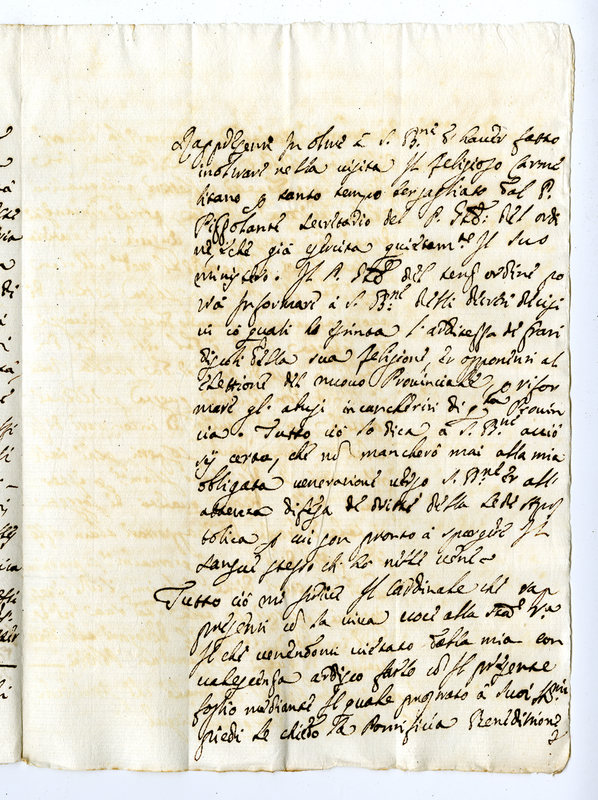 Rappresenti In oltre à S. B.ne d'haver fatto
inoltrare nella visita Il Religioso Carme
litano p tanto tempo bersagliato dal P.
Pissolanti secretario del P. Gñle del ordi
ne che già esercita quietam.te Il suo
ministero. Il P. Gñle del terz ordine po
trà Informare à S. B.ne delli decreti decisi
vi cō quali hò l'arditezza de
discoli della sua Religione In opponersi al
Elettione del nuovo Provinciale, p rifor
mare gl'abusi incancheriti di q.ta Provin
cia. Tutto ciò lo dica à S. B.ne acciò
sij certa, che nō mancherò mai alla mia
obligata veneratione verso S. B.ne et all
attenta difesa de dritti della Sede Apos
tolica p cui son pronto à spargere Il
sangue stesso ch'hò nelle vene
Tutto ciò mi disse Il Cardinale che rap
presenti cō la viva voce alla S.tà V.ra
Il che venendomi vietato dalla mia con
valescenza ardisco farlo cō Il presente
foglio mediante Il quale prostrato à suoi S.mi
piedi Le chiedo la Pontificia Beneditione